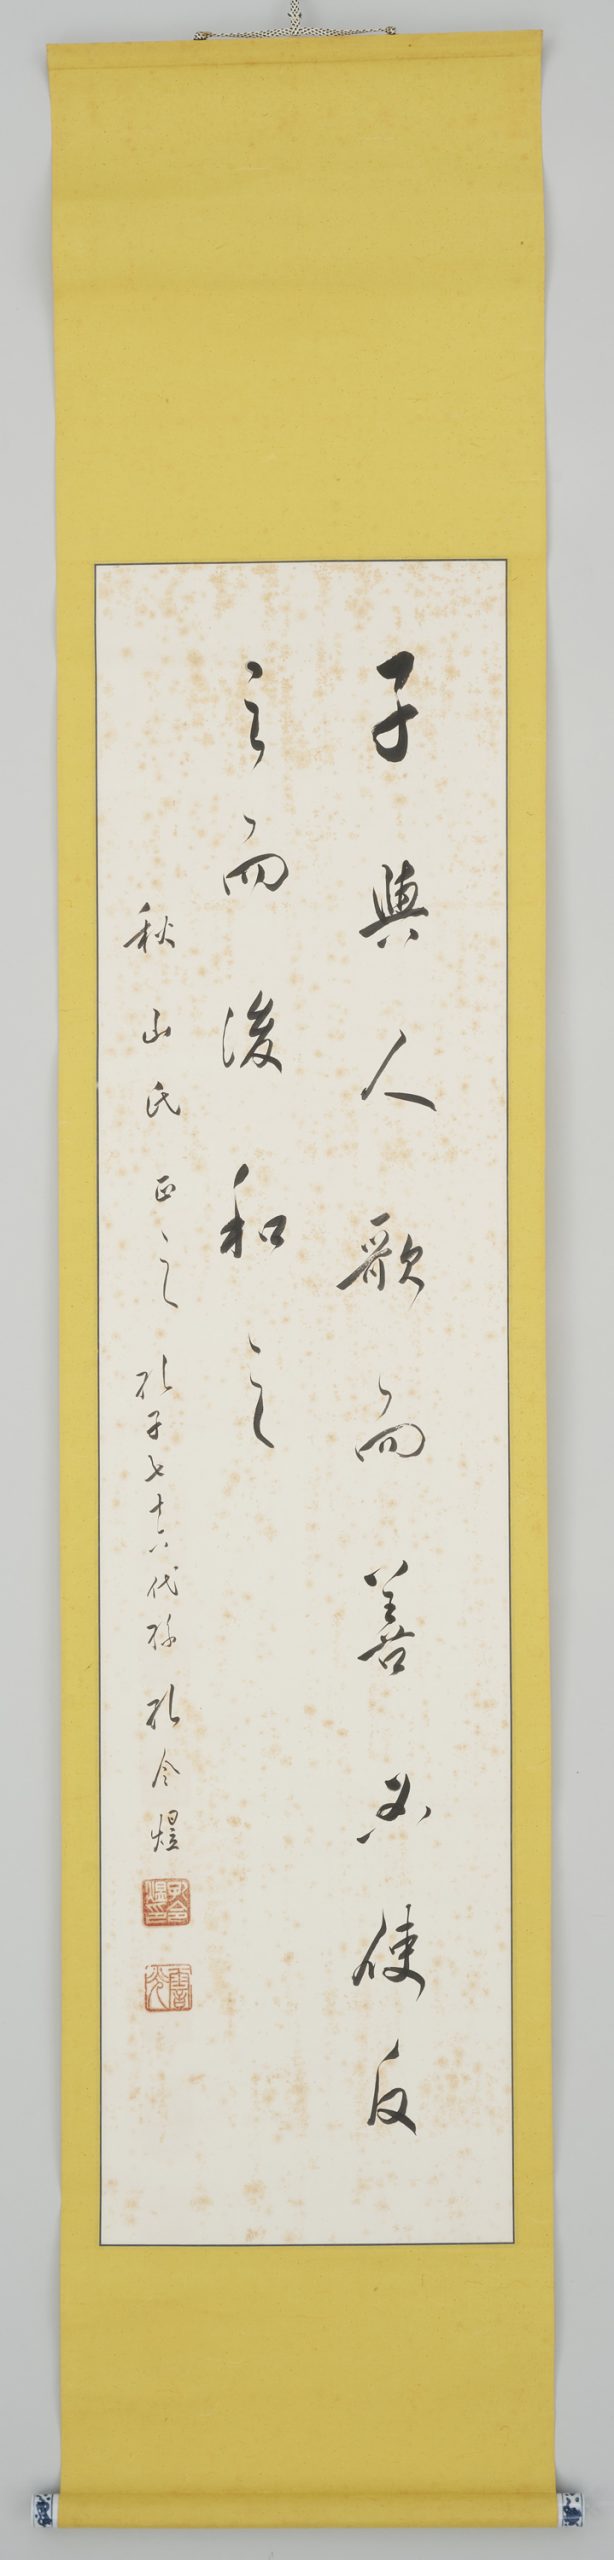 子與人歌而善必使反
之而後和之
秋山氏正之 孔子七十六代孫 孔令煜
孔令煜印